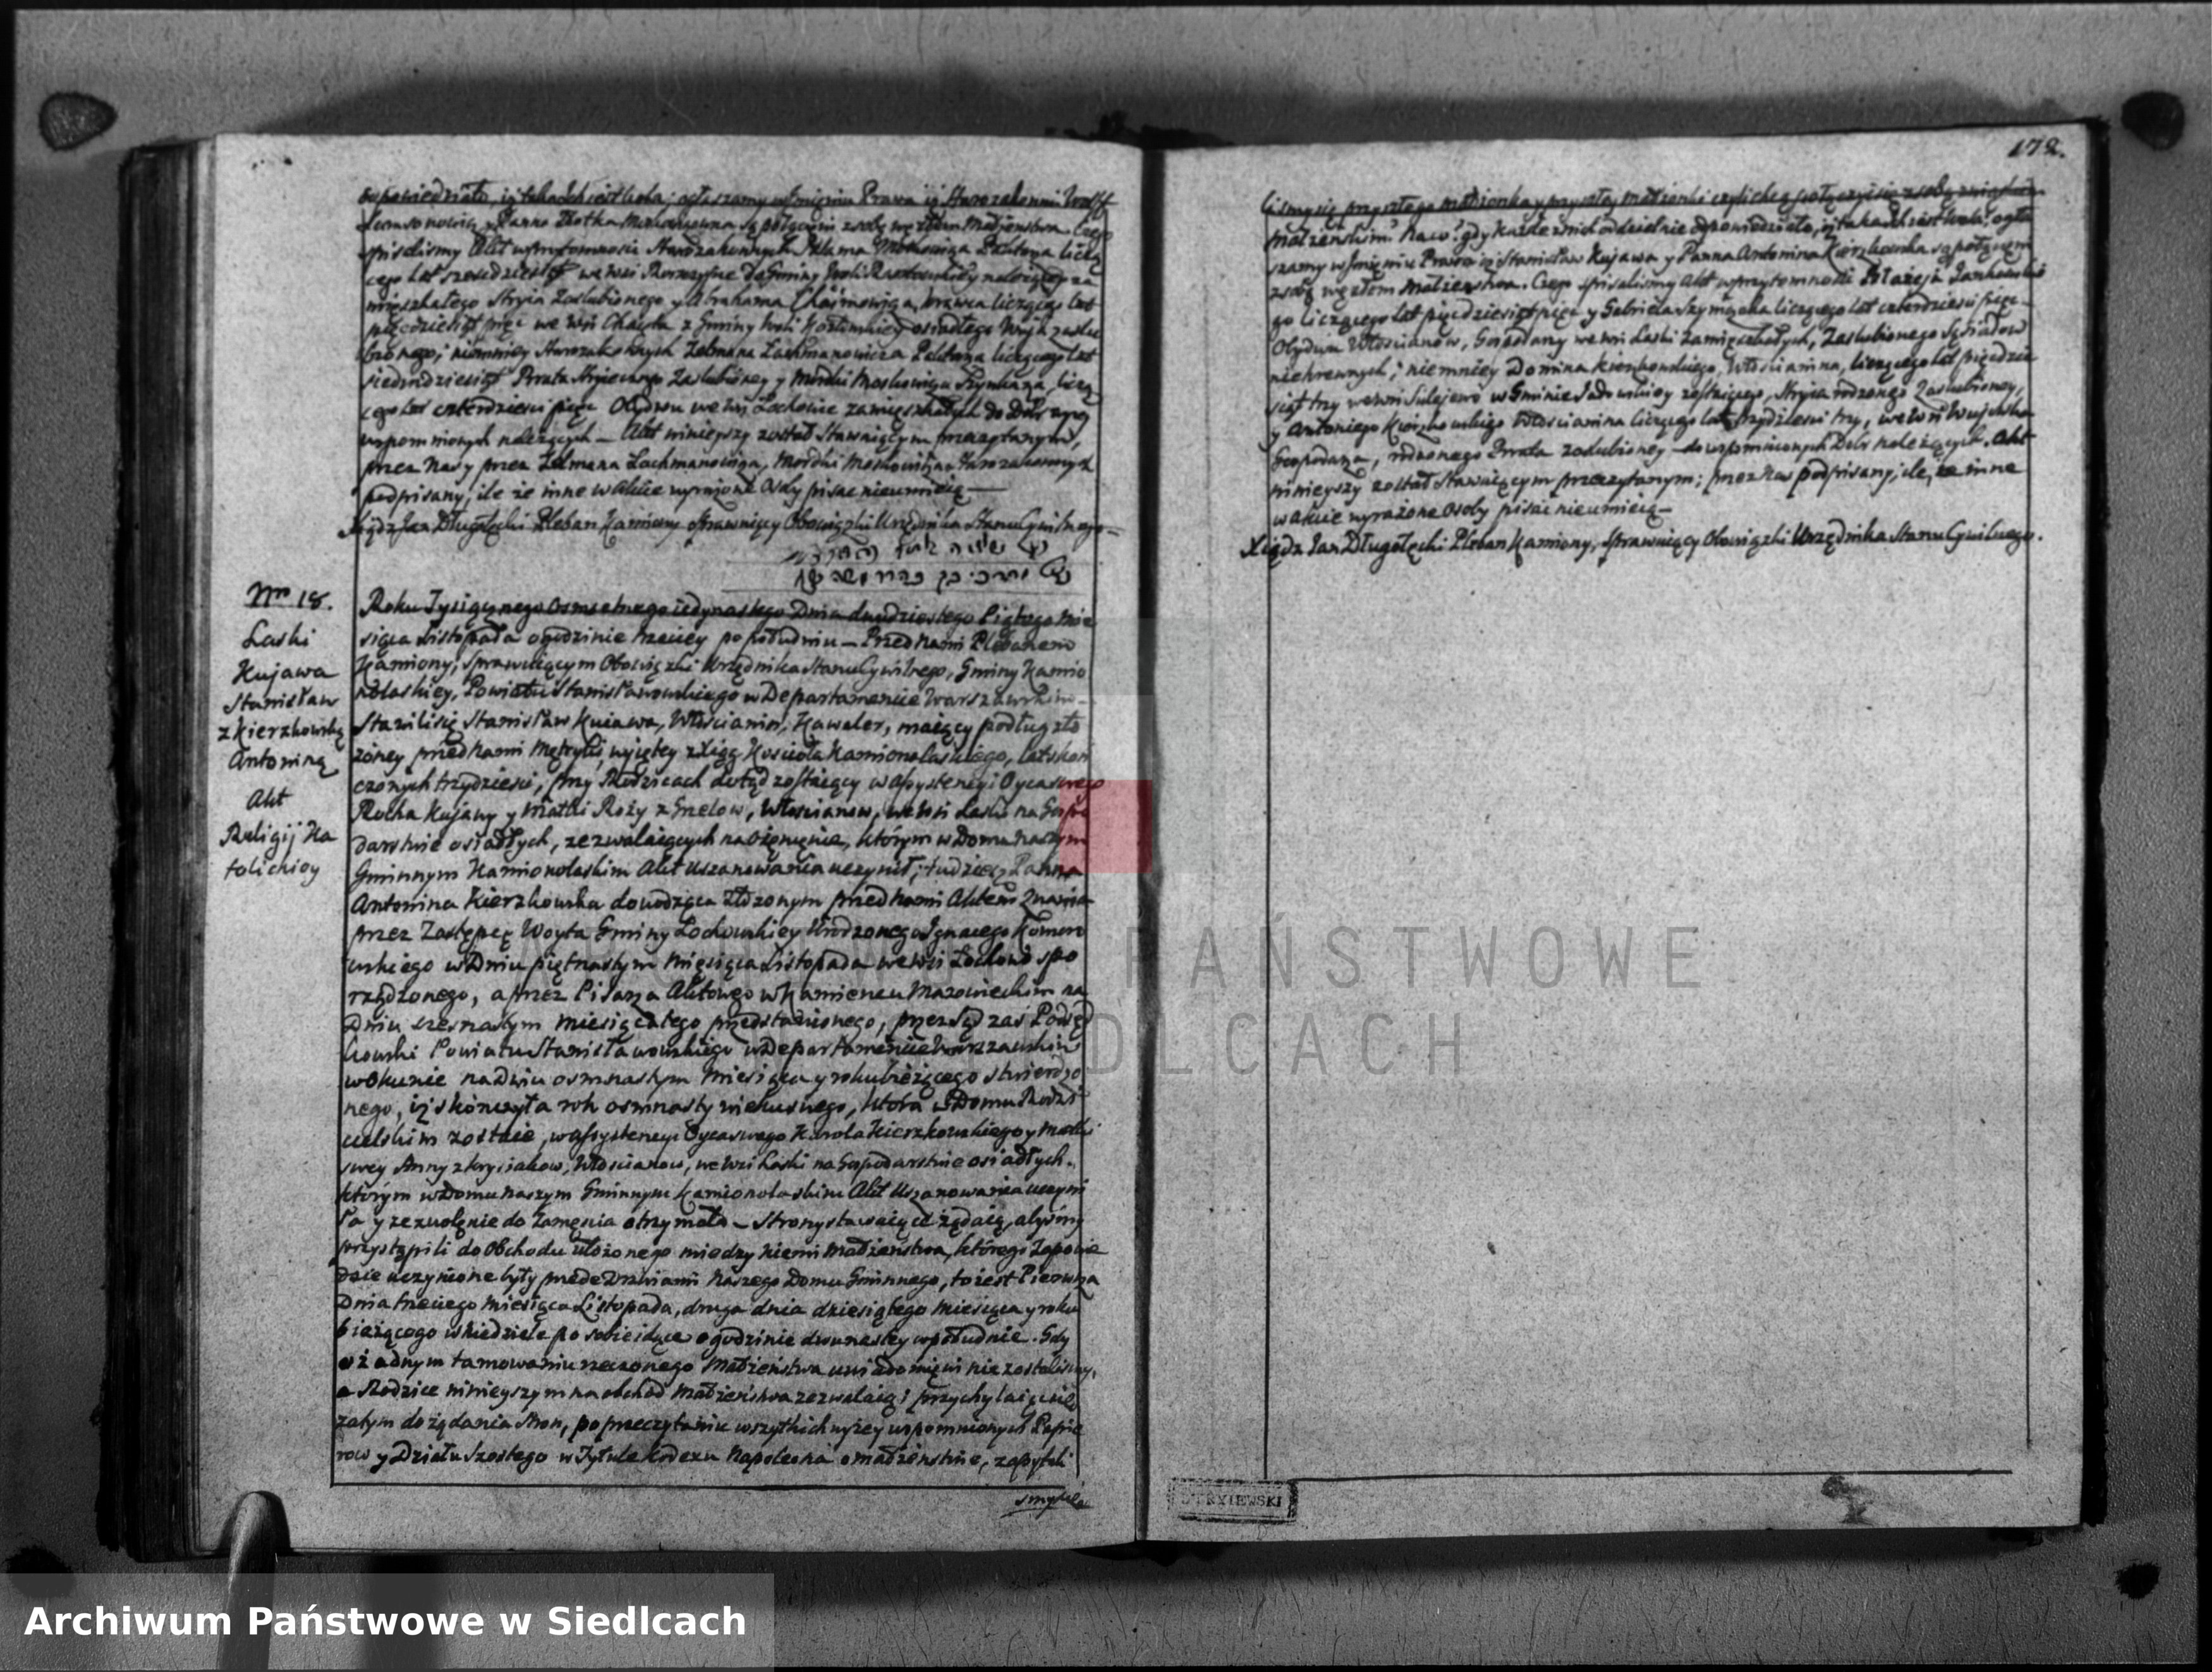 odpowiedziało, iż taka Ich iest wola; ogłaszamy w Imieniu Prawa iż Starozakonni Wolff
y Panna Złotka są połączeni z sobą węzłem Małżeństwa. Czego
spisaliśmy Akt w przytomności Starozakonnych Pachciarza liczą
cego lat sześćdziesiąt we wsi do Gminy należącey za
mieszkałego Stryia Zaslubionego y Abrahama krawca liczącego lat
pięćdziesiąt pięć we Wsi z Gminy osiadłego Wuja zaslu
bionego; niemniey Starozakonnych Zelmana Lachmanowicza liczącego lat
siedmdziesiąt Brata Stryiecznego Zaslubioney y Mordki Moskowicza Szynkarza, liczą
cego lat czterdzieści pięć Obydwu we wsi Łochowie zamięszkałych do Dóbr wyżey
wspomnionych należących – Akt ninieyszy został Stawaiącym przeczytanym,
przez Nas y przez Zelmana Lachmanowicza, Mordki Moskowicza Starozakonnych
podpisany, ile że inne w Akcie wyrażone Osoby pisać nieumieią –
Xiądz Jan Długołęcki Pleban Kamiony Sprawuiący Obowiązki Urzędnika Stanu Cywilnego –
Nro 18.
Laski
Kujawa
Stanisław
z Kierzkowską
Antoniną
Akt
Religij Ka
tolickiey
Roku Tysiącznego osmsetnego iedynastego Dnia dwudziestego Piątego Mie
siąca Listopada o godzinie trzeciey po południu – Przed Nami Plebanem
Kamiony, Sprawuiącym Obowiązki Urzędnika Stanu Cywilnego, Gminy Kamio
nolaskiey, Powiatu Stanisławowskiego w Departamencie Warszawskim –
Stawili się Stanisław Kuiawa, Włościanin, Kawaler, maiący podług zło
żoney przed Nami Metryki, wyiętey z Xiąg Kościoła Kamionolaskiego, lat skoń
czonych trzydzieści, przy Rodzicach dotąd zostaiący w assystencyi Oyca swego
Rocha Kujawy y Matki Roży z Gzelow, Włościanow, we Wsi Laski na Gospo
darstwie osiadłych, zezwalaiących na ożenienie, którym w Domu Naszym
Gminnym Kamionolaskim Akt Uszanowania uczynił; tudzież Panna
Antonina Kierzkowska dowodząca Złożonym przed Nami Aktem Znania
przez Zastępcę Woyta Gminy Łochowskiey Urodzonego Ignacego Komoro
wskiego w Dniu piętnastym Miesiąca Listopada we wsi Łochowie spo
rządzonego, a przez Pisarza Aktowego w Kamieńcu Mazowieckim na
Dniu szesnastym Miesiąca tego przedstawionego, przez Sąd zaś Podsęd
kowski Powiatu Stanisławowskiego w Departamencie Warszawskim
w Okunie na Dniu osmnastym Miesiąca y roku bieżącego stwierdzo
nego, iż skończyła rok osmnasty wieku swego, która w Domu Rodzi
cielskim zostaie, w assystencyi Oyca swego Karola Kierzkowskiego y Matki
swey Anny z Krysiakow, Włościanow, we Wsi Laski na Gospodarstwie osiadłych.
którym w Domu Naszym Gminnym Kamionolaskim Akt Uszanowania uczyni
ła y zezwolenie do Zamęścia otrzymała – Strony stawaiące żądaią, abyśmy
przystąpili do Obchodu ułożonego między niemi Małżeństwa, którego Zapowie
dzie uczynione były przede Drzwiami Naszego Domu Gminnego, to iest Pierwsza
Dnia trzeciego Miesiąca Listopada, druga dnia dziesiątego Miesiąca y roku
bieżącego w Niedziele po sobie idące o godzinie dwunastey w południe. Gdy
o żadnym tamowaniu rzeczonego Małżeństwa uwiadomieni nie zostaliśmy,
a Rodzice ninieyszym na obchód Małżeństwa zezwalaią; przychylaiąc się
zatym do żądania Stron, po przeczytaniu wszytkich wyżey wspomnionych Papie
row y Działu Szóstego w Tytule Kodexu Napoleona o Małżeństwie, zapytali
smy się
172.
liśmy się przyszłego małżonka y przyszłey małżonki czyli chcą połączyć się z sobą związkiem
Małżeńskim? Na co gdy każde z nich oddzielnie odpowiedziało, iż taka Ich iest wola, ogła
szamy w Imieniu Prawa iż Stanisław Kujawa y Panna Antonina Kierzkowska są połączeni
z sobą węzłem Małżeństwa. Czego spisaliśmy Akt w przytomności Błażeja Jankowskie
go liczącego lat pięćdziesiąt pięć y Gabriela Szymczaka liczącego lat czterdzieści pięć –
Obydwu Włościanow, Gospodarzy we wsi Laski zamięszkałych, Zaslubionego Sąsiadow
niekrewnych; niemniey Domina Kierzkowskiego, Włościanina, liczącego lat pięćdzie
siąt trzy we wsi Sulejewie w Gminie Jadowskiey zostaiącego, Stryia rodzonego Zaslubioney,
y Antoniego Kierzkowskiego Włościanina liczącego lat trzydzieści trzy, we Wsi
Gospodarza, rodzonego Brata zaslubioney – do wspomnionych Dóbr należących. Akt
ninieyszy został Stawaiącym przeczytanym; przez Nas podpisany, ile, że inne
w akcie wyrażone Osoby pisać nieumieią –
Xiądz Jan Długołęcki Pleban Kamiony, Sprawuiący Obowiązki Urzędnika Stanu Cywilnego.
PAŃSTWOWE
DLCACH
Archiwum Państwowe w Siedlcach